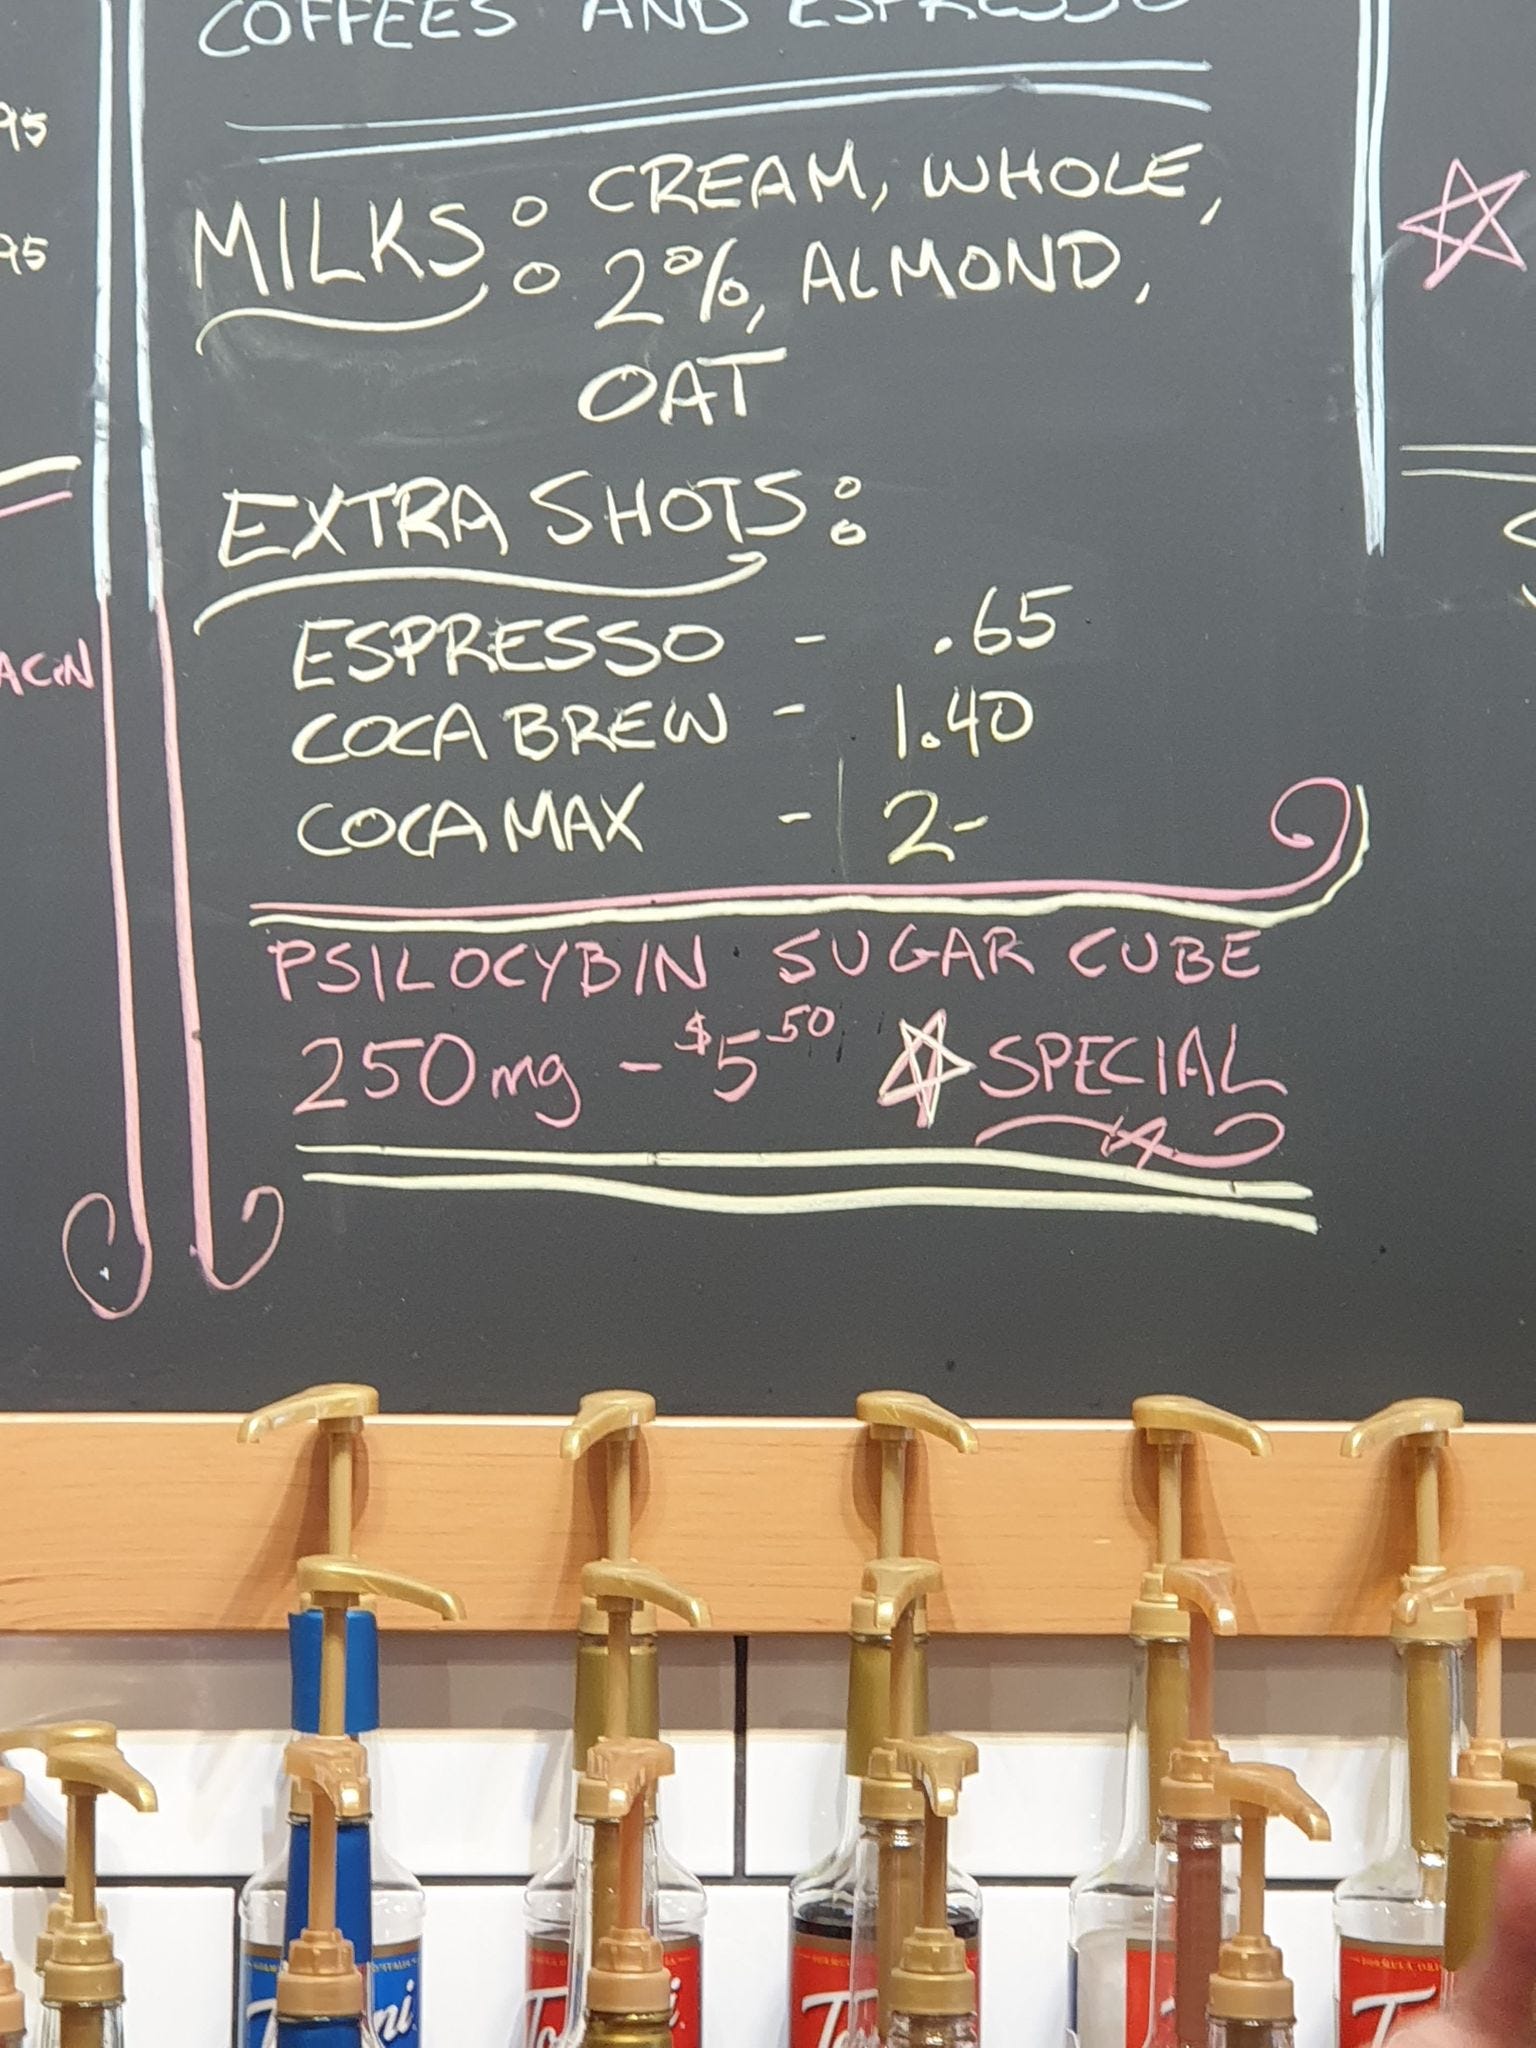 COFFEES AND ESPRESSO
95
95
MILKS: CREAM, WHOLE,
2%, ALMOND,
OAT
EXTRA SHOTS:
ESPRESSO - .65
COCA BREW - 1.40
COCA MAX - 2-
PSILOCYBIN SUGAR CUBE
250mg - $5.50 SPECIAL